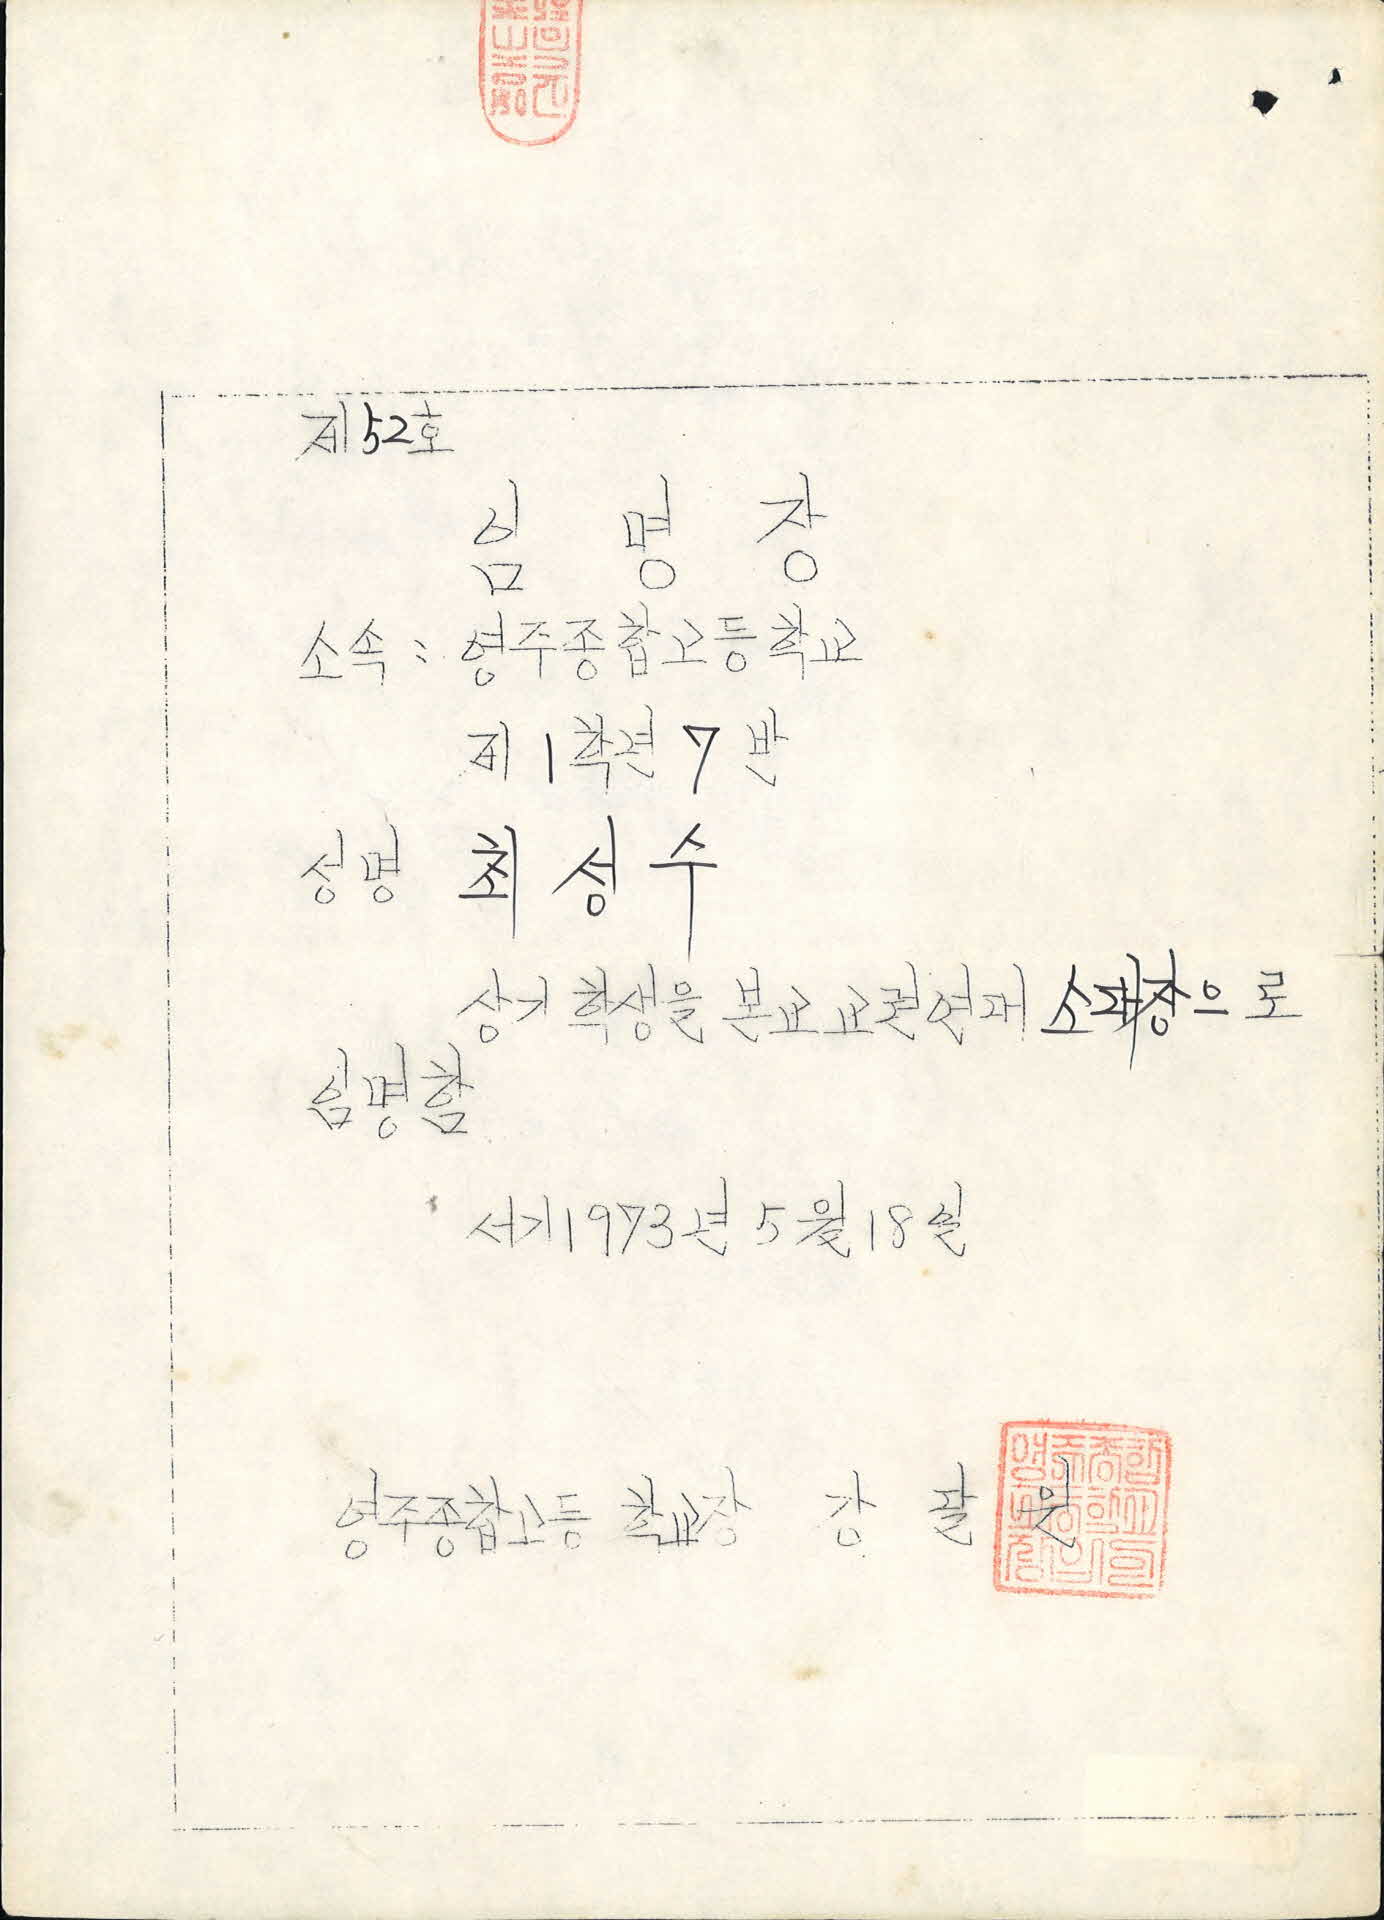 제52호
임 명 장
소속: 영주종합고등학교
제 1 학년 7 반
성명 최성수
상기 학생을 본교 교련연대 소대장으로
임명함
서기 1973년 5월 18일
영주종합고등학교장 강 팔 원
영주종합
고등학교
장의인